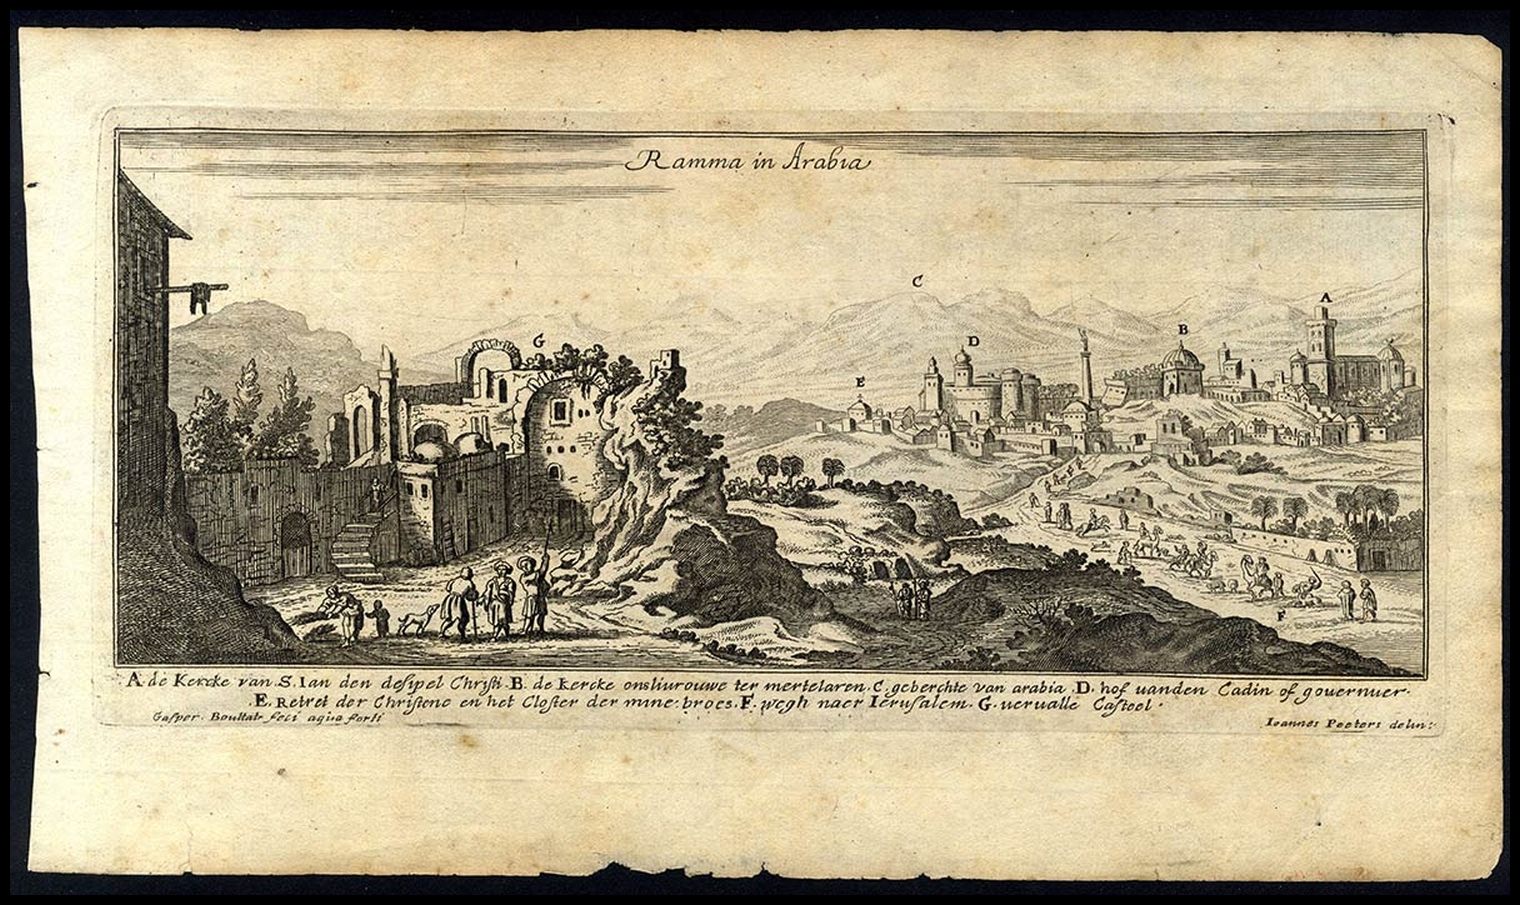 Ramma in Arabia
C
A
B
G
D
E
F
A de Kercke van S. Ian den desipel Christi. B. de kercke onsliurouwe ter mertelaren. C. geberchte van arabia. D. hof uanden Cadin of gouernuer.
E. Retret der Christene en het Closter der mine-broes. F. wegh naer Ierusalem. G. ueruallé Casteel.
Gasper. Bouttats feci aqua forti
Ioannes Peeters delin: